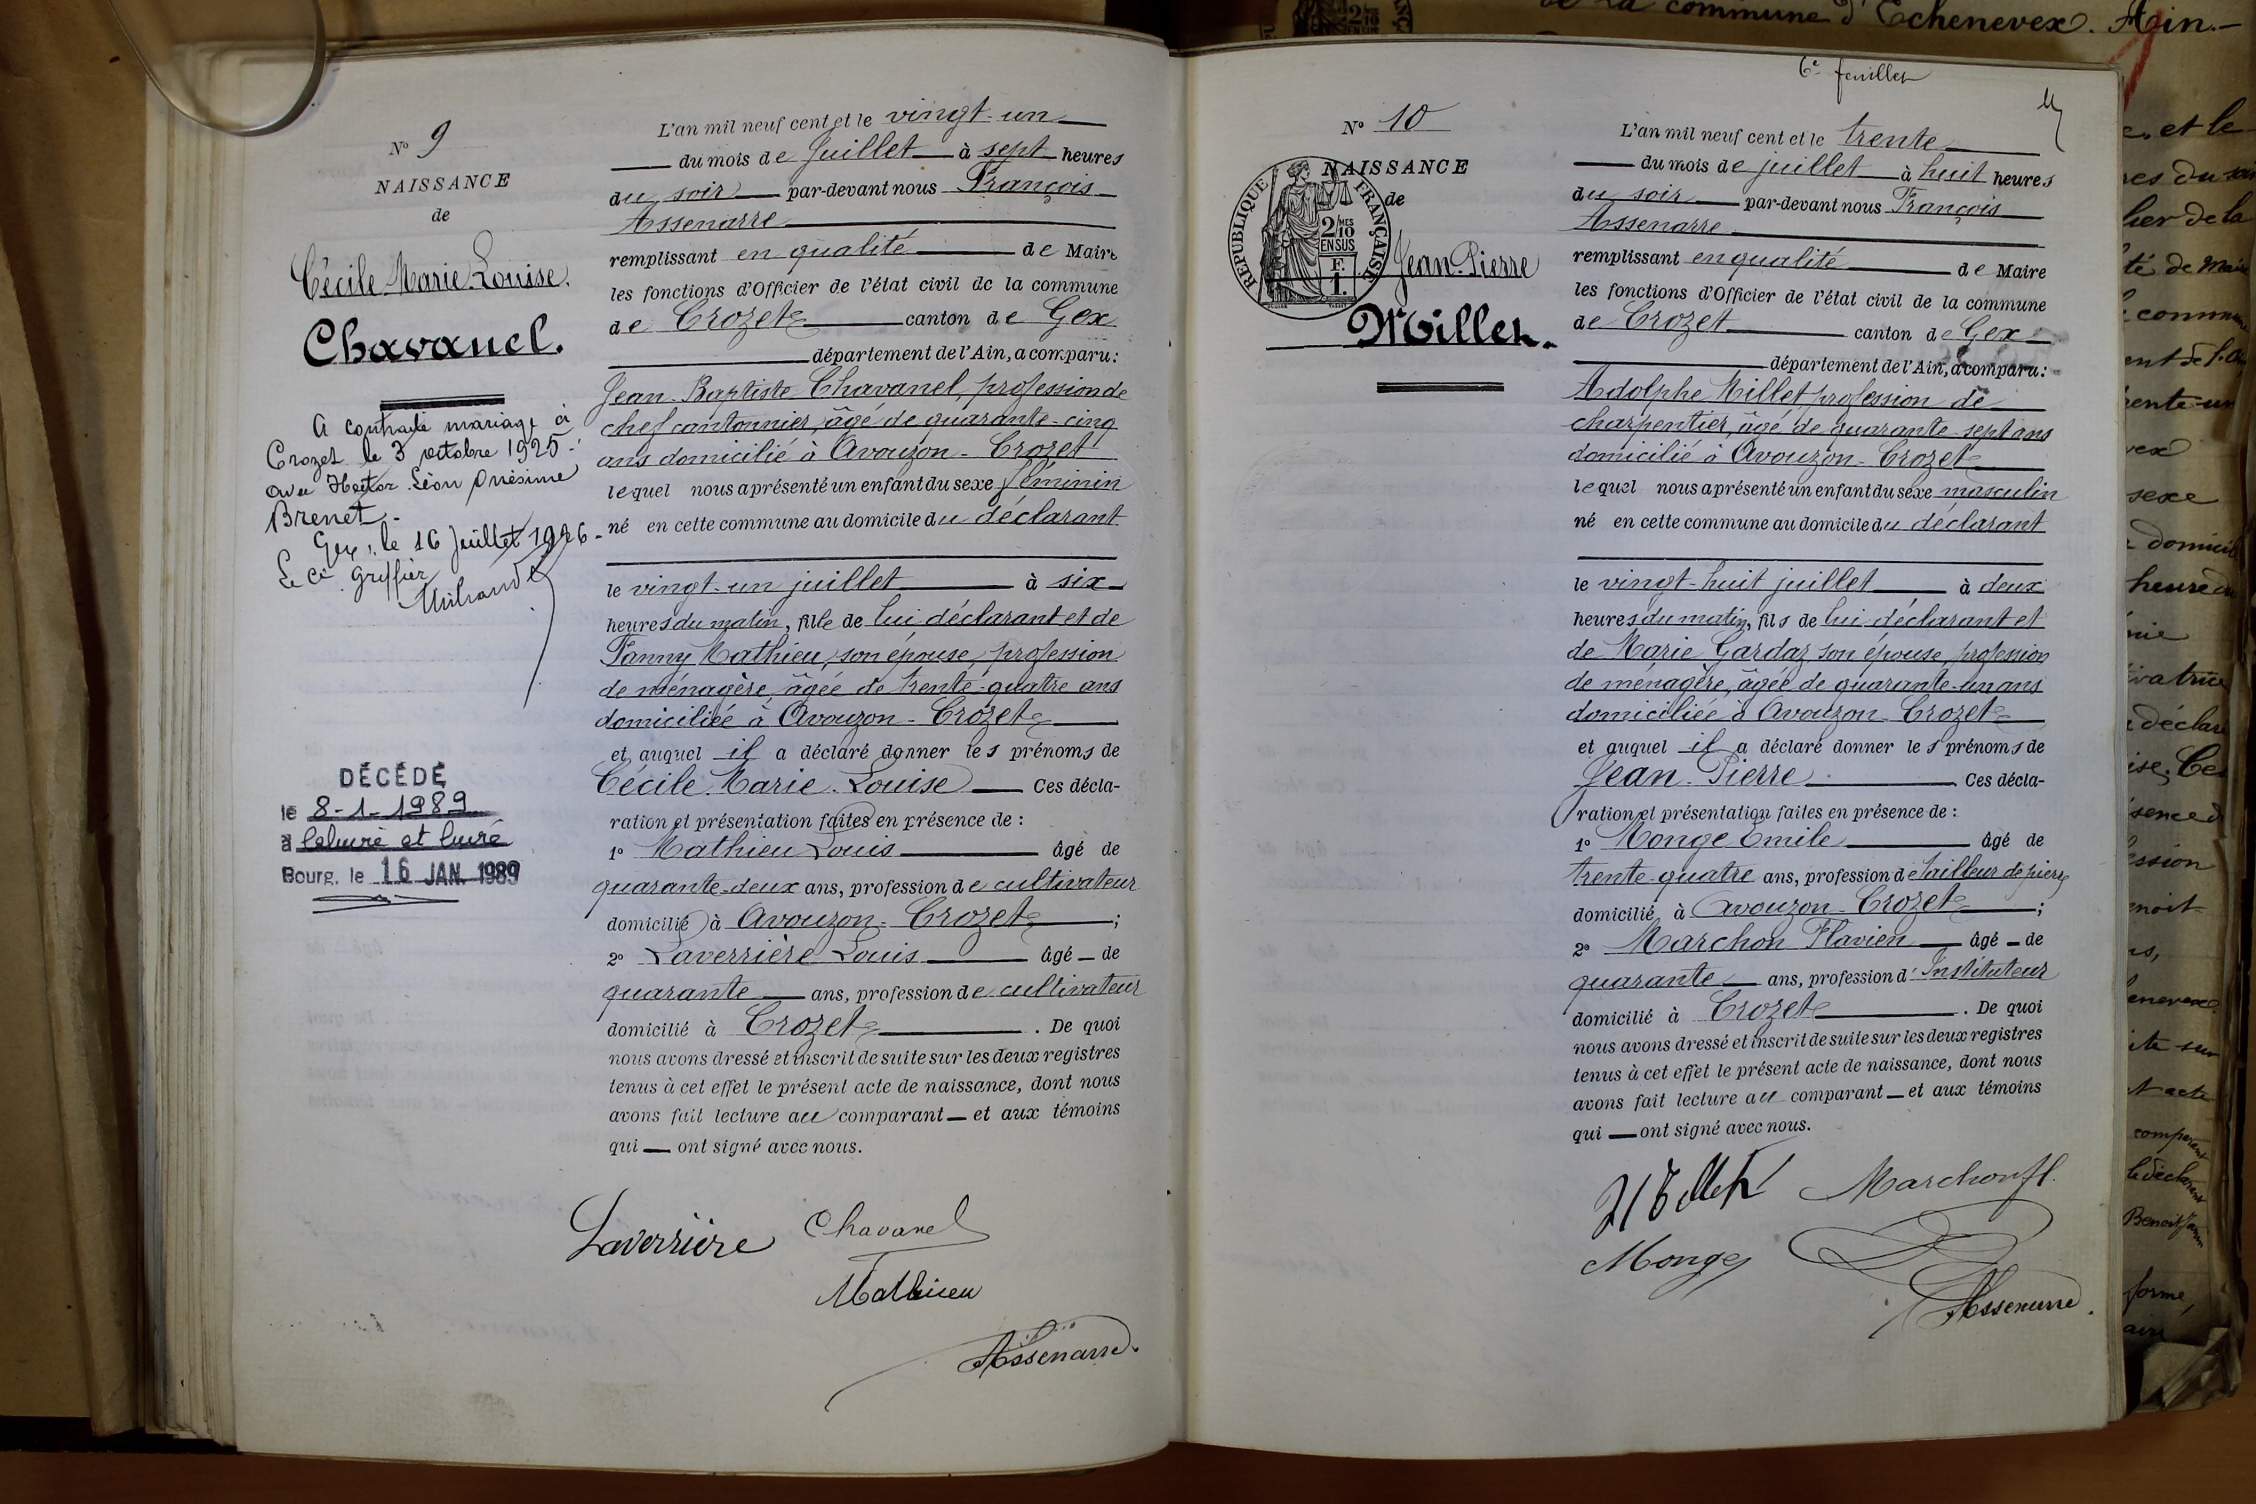 N° 9
NAISSANCE
de
Cécile Marie Louise.
Chavanel.
A contracté mariage à
Crozet le 3 octobre 1925.
avec Hector Léon Onésime
Brenet.
Gex, le 16 Juillet 1926.
Le Cis Greffier
DÉCÉDÉ
le 8-1-1989
à Caluire et Cuire
Bourg, le 16 JAN. 1989
L'an mil neuf cent et le vingt-un
du mois de Juillet à sept heures
du soir par-devant nous François
Assenarre
remplissant en qualité de Maire
les fonctions d'Officier de l'état civil de la commune
de Crozet canton de Gex
département de l'Ain, a comparu:
Jean-Baptiste Chavanel, profession de
chef cantonnier, âgé de quarante-cinq
ans domicilié à Avouzon-Crozet
lequel nous a présenté un enfant du sexe féminin
né en cette commune au domicile du déclarant
le vingt-un juillet à six
heures du matin, fille de lui déclarant et de
Fanny Mathieu, son épouse, profession
de ménagère, âgée de trente-quatre ans
domiciliée à Avouzon-Crozet
et auquel il a déclaré donner les prénoms de
Cécile Marie Louise Ces décla-
ration et présentation faites en présence de :
1° Mathieu Louis âgé de
quarante-deux ans, profession de cultivateur
domicilié à Avouzon-Crozet ;
2° Laverrière Louis âgé de
quarante ans, profession de cultivateur
domicilié à Crozet . De quoi
nous avons dressé et inscrit de suite sur les deux registres
tenus à cet effet le présent acte de naissance, dont nous
avons fait lecture au comparant et aux témoins
qui ont signé avec nous.
Laverrière Chavanel
Mathieu
Assenarre.
de la commune d'Echenevex. Ain.
6e feuillet
N° 10
NAISSANCE
de
RÉPUBLIQUE FRANÇAISE
2 MES
10
EN SUS
F.
1.
Jean-Pierre
Millet.
L'an mil neuf cent et le trente
du mois de juillet à huit heures
du soir par-devant nous François
Assenarre
remplissant en qualité de Maire
les fonctions d'Officier de l'état civil de la commune
de Crozet canton de Gex
département de l'Ain, a comparu:
Adolphe Millet profession de
charpentier, âgé de quarante-sept ans
domicilié à Avouzon-Crozet
lequel nous a présenté un enfant du sexe masculin
né en cette commune au domicile du déclarant
le vingt-huit juillet à deux
heures du matin, fils de lui déclarant et
de Marie Gardaz, son épouse, profession
de ménagère, âgée de quarante-un ans
domiciliée à Avouzon-Crozet
et auquel il a déclaré donner les prénoms de
Jean-Pierre Ces décla-
ration et présentation faites en présence de :
1° Monge Emile âgé de
trente-quatre ans, profession de tailleur de pierre
domicilié à Avouzon-Crozet ;
2° Marchon Flavien âgé de
quarante ans, profession d'Instituteur
domicilié à Crozet . De quoi
nous avons dressé et inscrit de suite sur les deux registres
tenus à cet effet le présent acte de naissance, dont nous
avons fait lecture au comparant et aux témoins
qui ont signé avec nous.
Millet Marchon fl.
Monge
Assenarre.